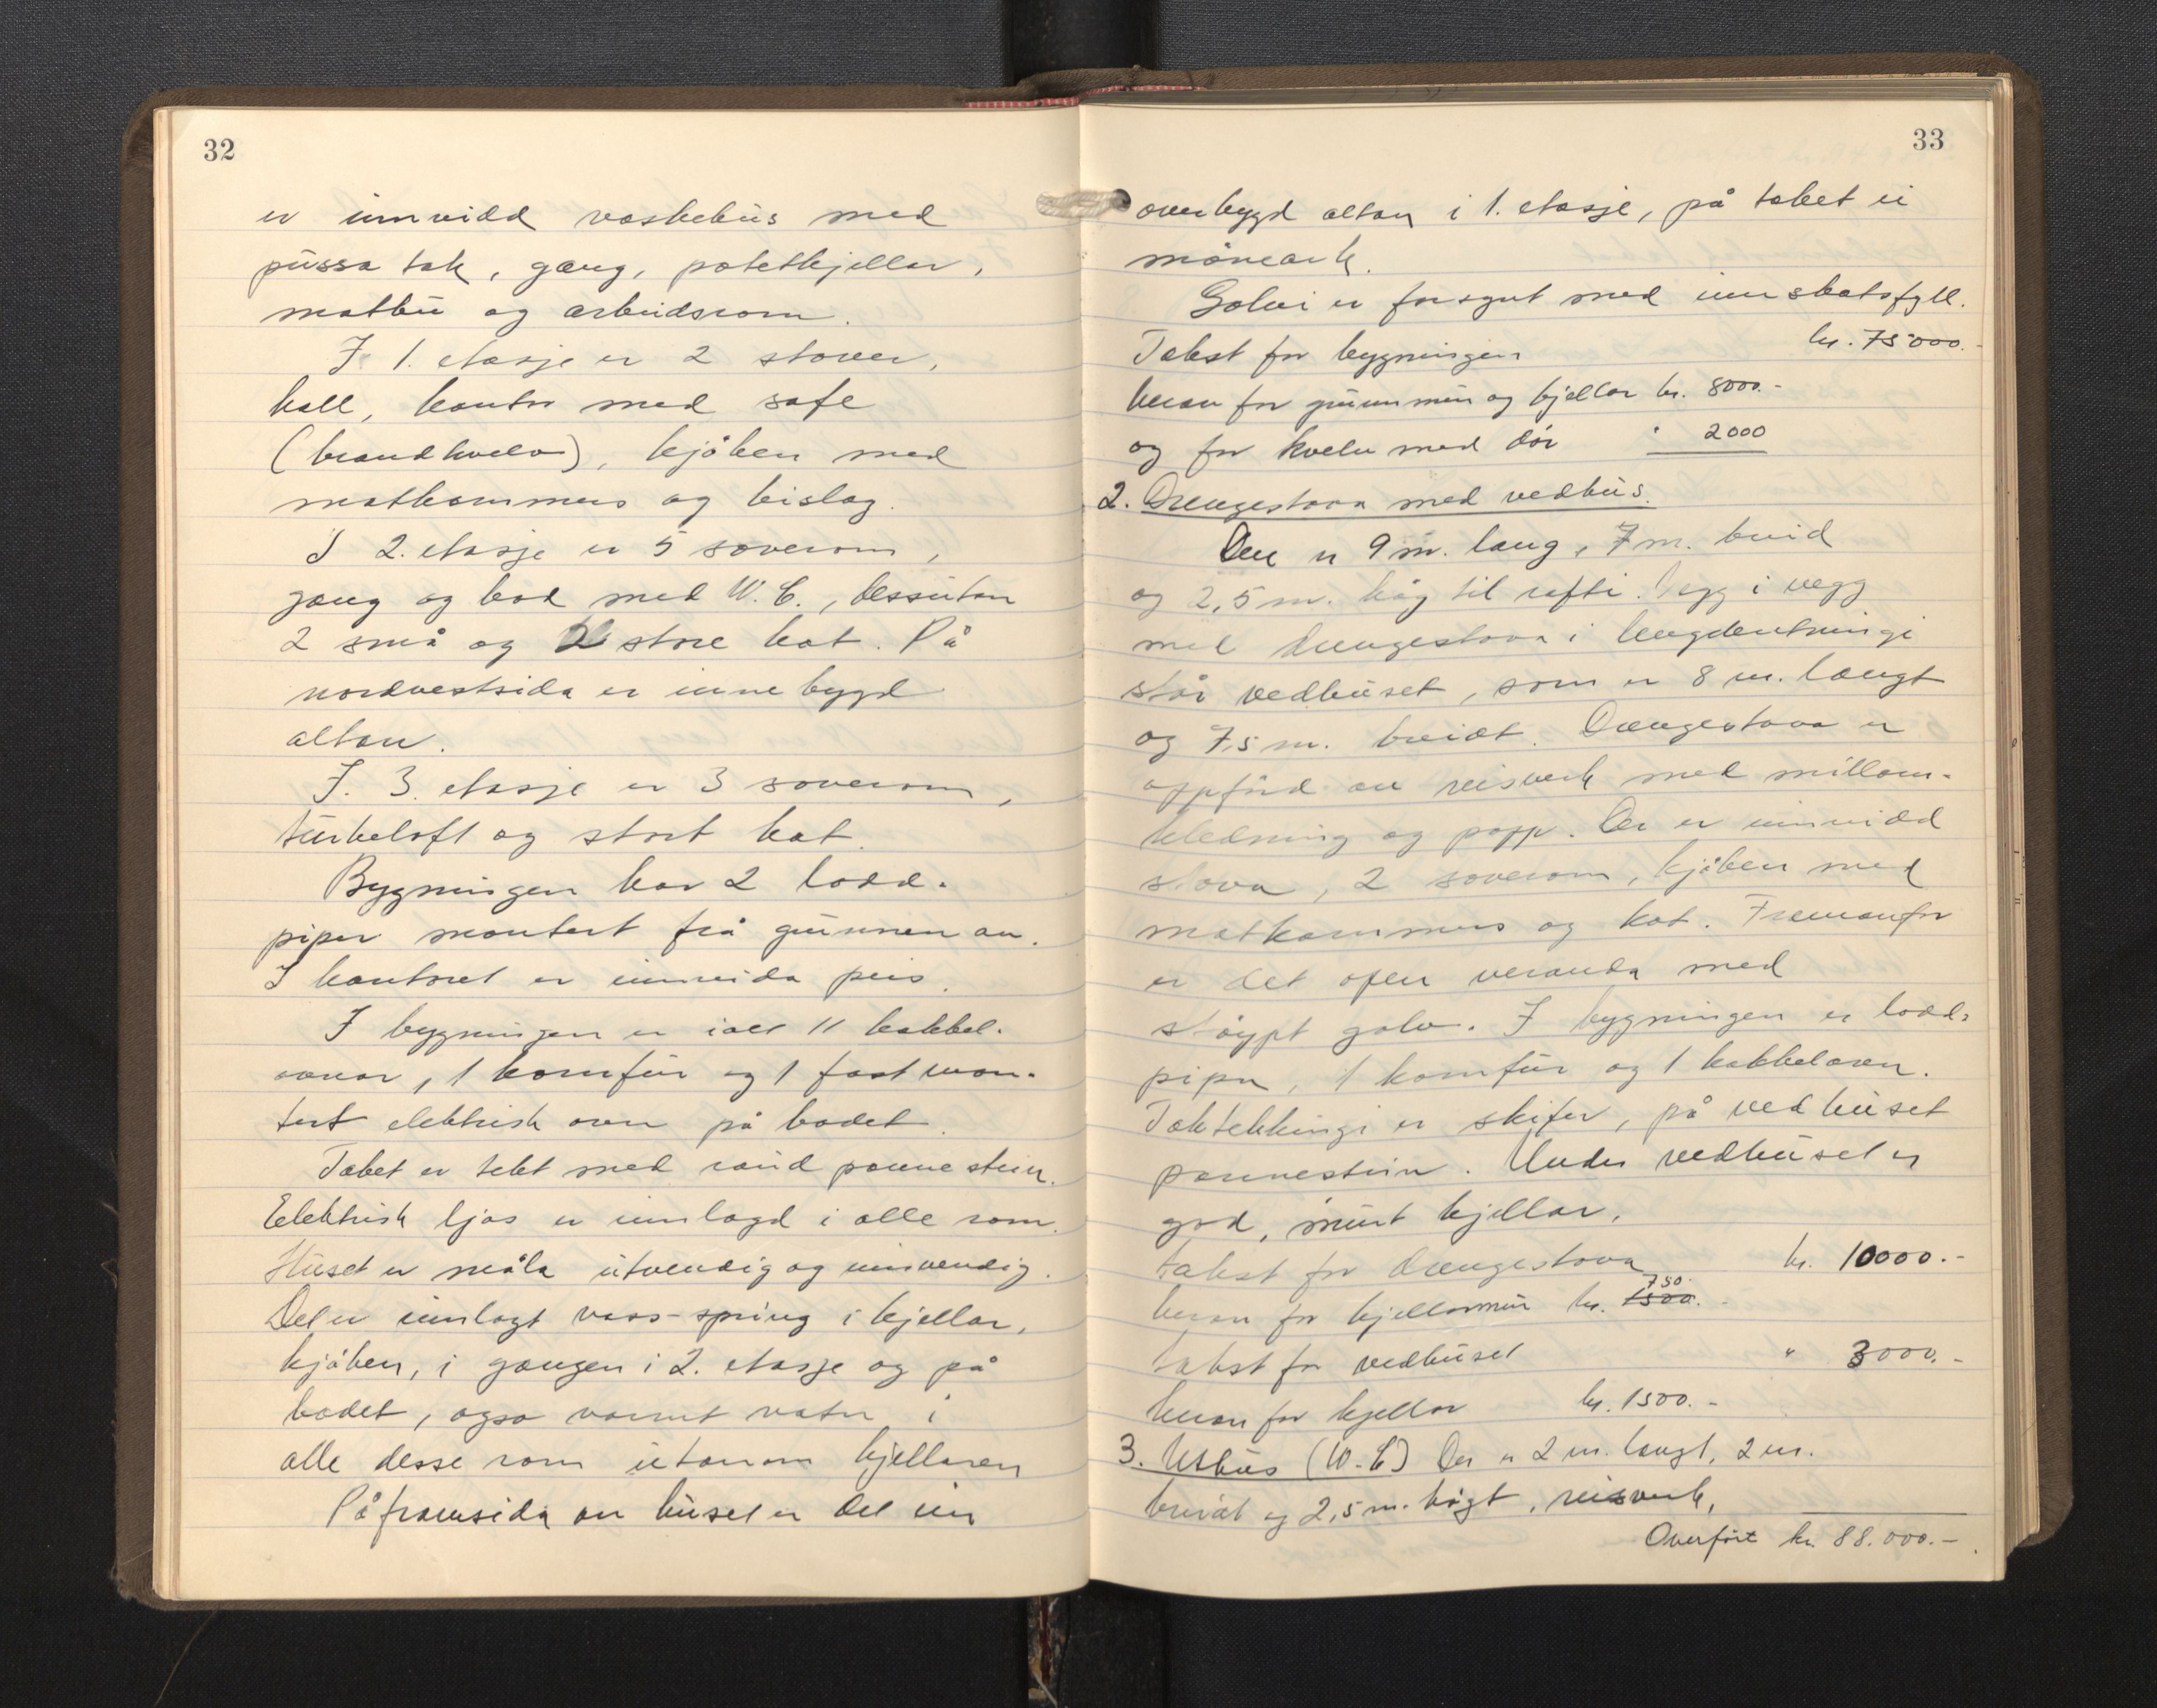 32
er innreidd vaskehus med
pussa tak, gang, potetkjellar,
matbu og arbeidsrom.
I 1. etasje er 2 stover,
hall, kontor med safe
(brandkvelv), kjøken med
matkammers og bislag.
I 2. etasje er 5 soverom,
gang og bad med W.C., dessutan
2 små og 2 store kot. På
nordvestsida er innebygd
altan.
I 3. etasje er 3 soverom,
turkeloft og stort kot.
Bygningen har 2 lodd-
piper montert frå grunnen av.
I kontoret er innreida peis.
I bygningen er ialt 11 kakkel-
ovnar, 1 komfur og 1 fast mon-
tert elektrisk ovn på badet.
Taket er tekt med raud pannestein.
Elektrisk ljos er innlagd i alle rom.
Huset er måla utvendig og innvendig.
Det er innlagt vass-spring i kjellar,
kjøken, i gangen i 2. etasje og på
badet, også varmt vatn i
alle desse rom utanom kjellaren
På framsida av huset er det ein
33
overbygd altan i 1. etasje, på taket ei
møneark.
Golvi er forsynt med innskotsfyll.
Takst for bygningen kr. 75000.-
herav for grunnmur og kjellar kr. 8000.-
og for kvelv med dør " 2000
2. Drengestova med vedhus.
Den er 9 m. lang, 7 m. breid
og 2,5 m. høg til rafti. Vegg i vegg
med drengestova i lengderetningi
står vedhuset, som er 8 m. langt
og 7,5 m. breidt. Drengestova er
oppførd av reisverk med millom-
kledning og papp. Der er innreidd
stova, 2 soverom, kjøken med
matkammers og kot. Framanfor
er det open veranda med
støypt golv. I bygningen er lodd-
pipa, 1 komfur og 1 kakkelovn.
Taktekkingi er skifer, på vedhuset
pannestein. Under vedhuset er
god, murt kjellar.
Takst for drengestova kr. 10000.-
750.
herav for kjellarmur kr. 1500.-
takst for vedhuset " 3000.-
herav for kjellar kr. 1500.-
3. Uthus (W.C) Der er 2 m. langt, 2 m.
breidt og 2,5 m. høgt, reisverk,
Overført kr. 88.000.-